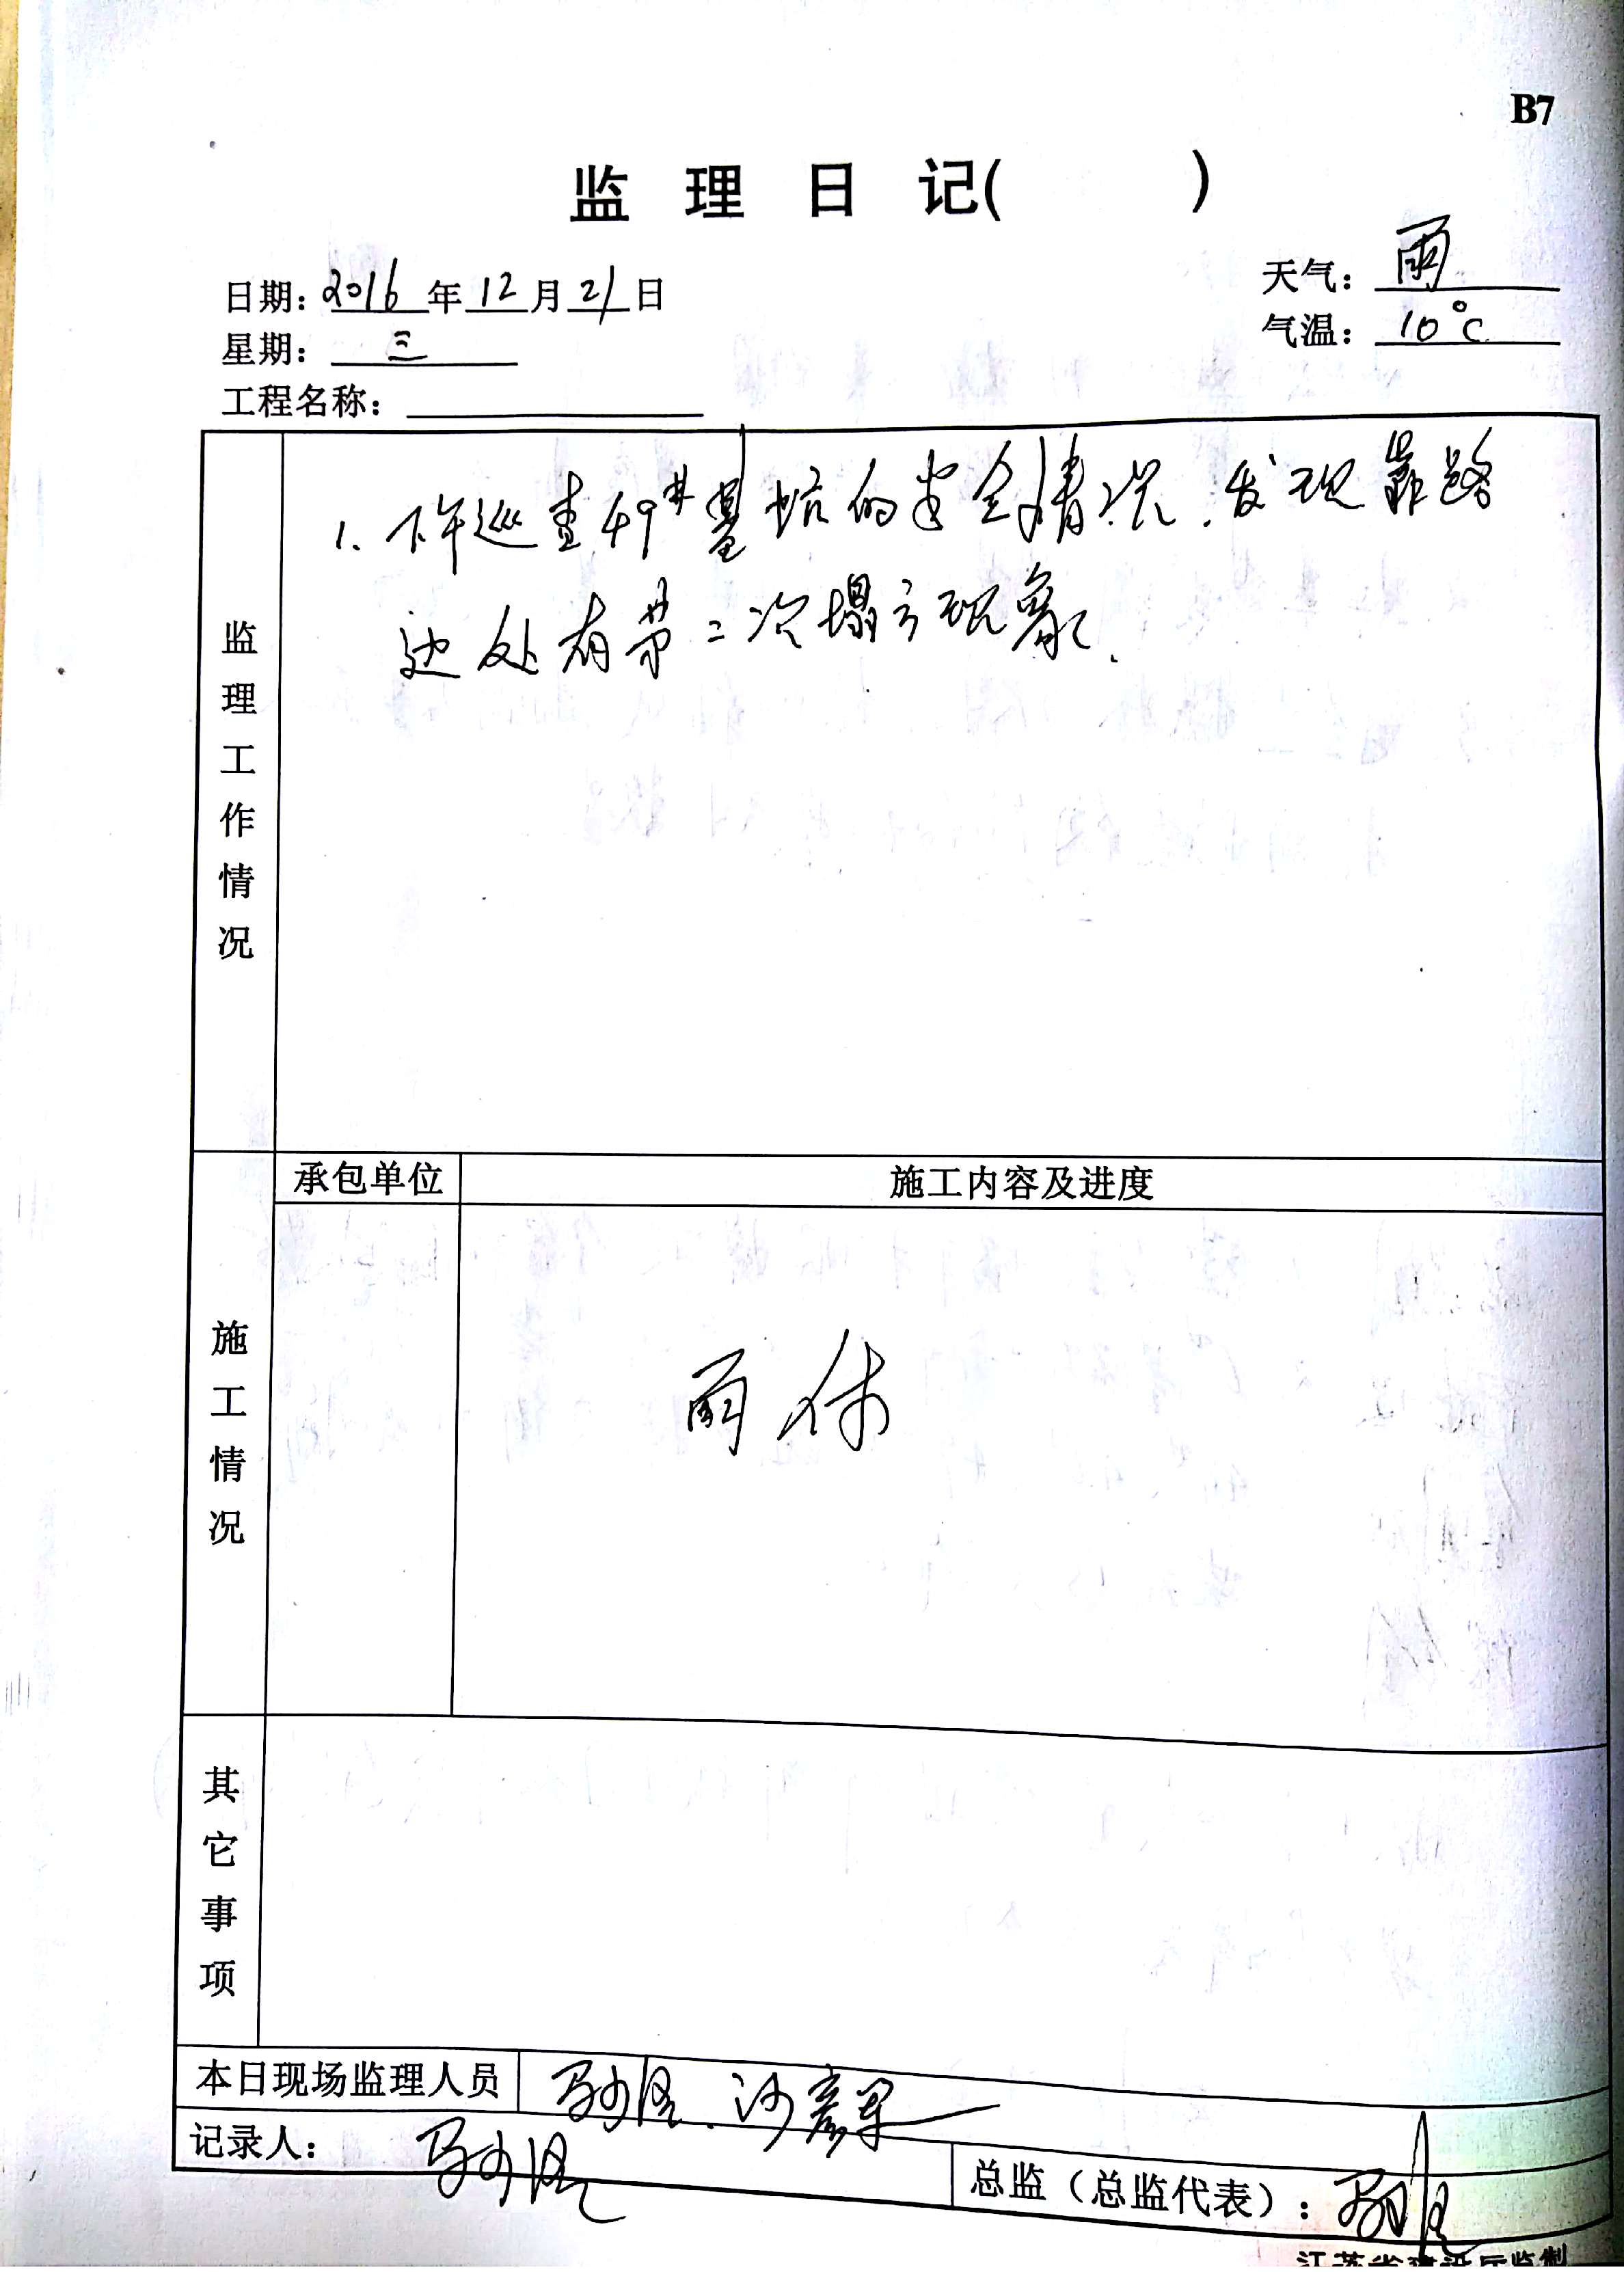 B7
监理日记( )
日期: 2016 年 12 月 21 日
天气: 雨
星期: 三
气温: 10°C
工程名称:
监理工作情况
1. 下午巡查49#基坑的安全情况.发现靠路
边处有第二次塌方现象.
承包单位
施工内容及进度
施工情况
雨休
其它事项
本日现场监理人员
记录人:
总监（总监代表）:
江苏省建设厅监制